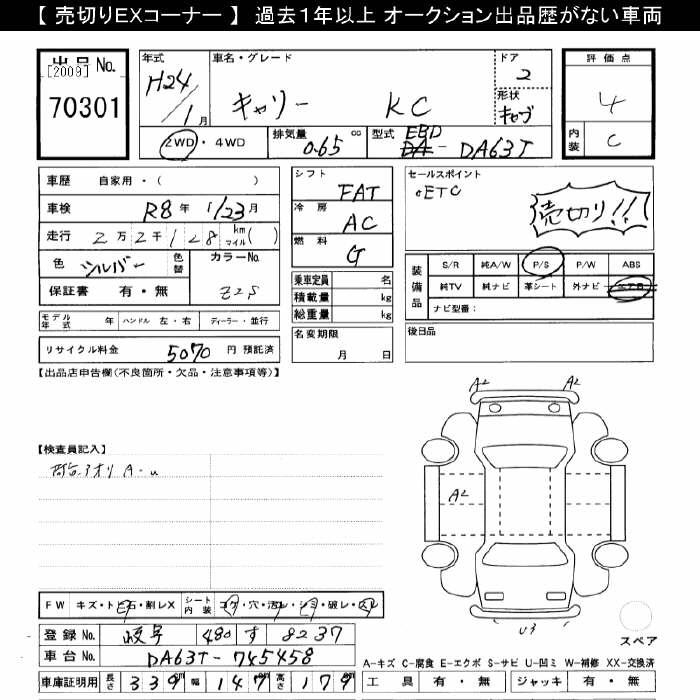 【 売切りEXコーナー 】 過去1年以上 オークション出品歴がない車両
出品No.
[2009]
70301
年式
H24/1月
車名・グレード
キャリー KC
ドア
2
形状
キャブ
評価点
4
内装
C
2WD・4WD
排気量
0.65 cc
型式
EBD
DA-DA63T
車歴 自家用・( )
車検 R8年 1/23月
走行 2万2千128 km マイル( )
色 シルバー 色替
カラーNo.
Z2S
保証書 有・無
モデル年式 年 ハンドル 左・右 ディーラー・並行
リサイクル料金 5070円 預託済
シフト
FAT
冷房
AC
燃料
G
乗車定員 名
積載量 kg
総重量 kg
名変期限
月 日
セールスポイント
○ETC
売切り!!
装備品
S/R 純A/W P/S P/W ABS
純TV 純ナビ 革シート 外ナビ
ナビ型番:
後日品
【出品店申告欄(不良箇所・欠品・注意事項等)】
【検査員記入】
アオリ A-u
A2 A2
A2
U3
スペア
FW キズ・トビ石・割レX
シート内装 コゲ・穴・汚レ・シミ・破レ・スレ
登録No. 岐阜 480 す 8237
車台No. DA63T-745458
車庫証明用 長さ 339 幅 147 高さ 179
A-キズ C-腐食 E-エクボ S-サビ U-凹ミ W-補修 XX-交換済
工具 有・無 ジャッキ 有・無